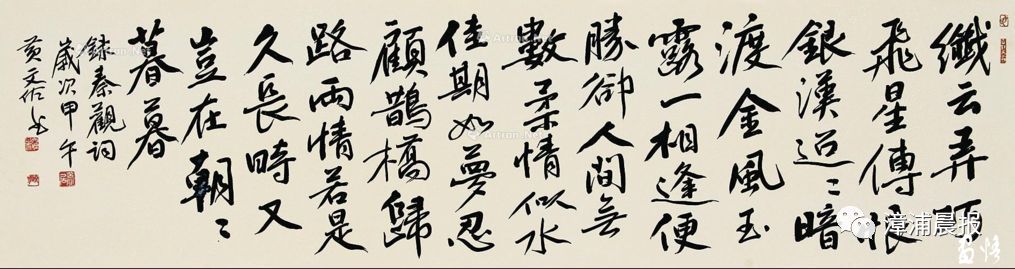 纖云弄巧
飛星傳恨
銀漢迢〻暗
渡金風玉
露一相逢便
勝卻人間無
數柔情似水
佳期如夢忍
顧鵲橋歸
路兩情若是
久長時又
豈在朝〻
暮暮
錄秦觀詞
歲次甲午
黃
漳浦晨报